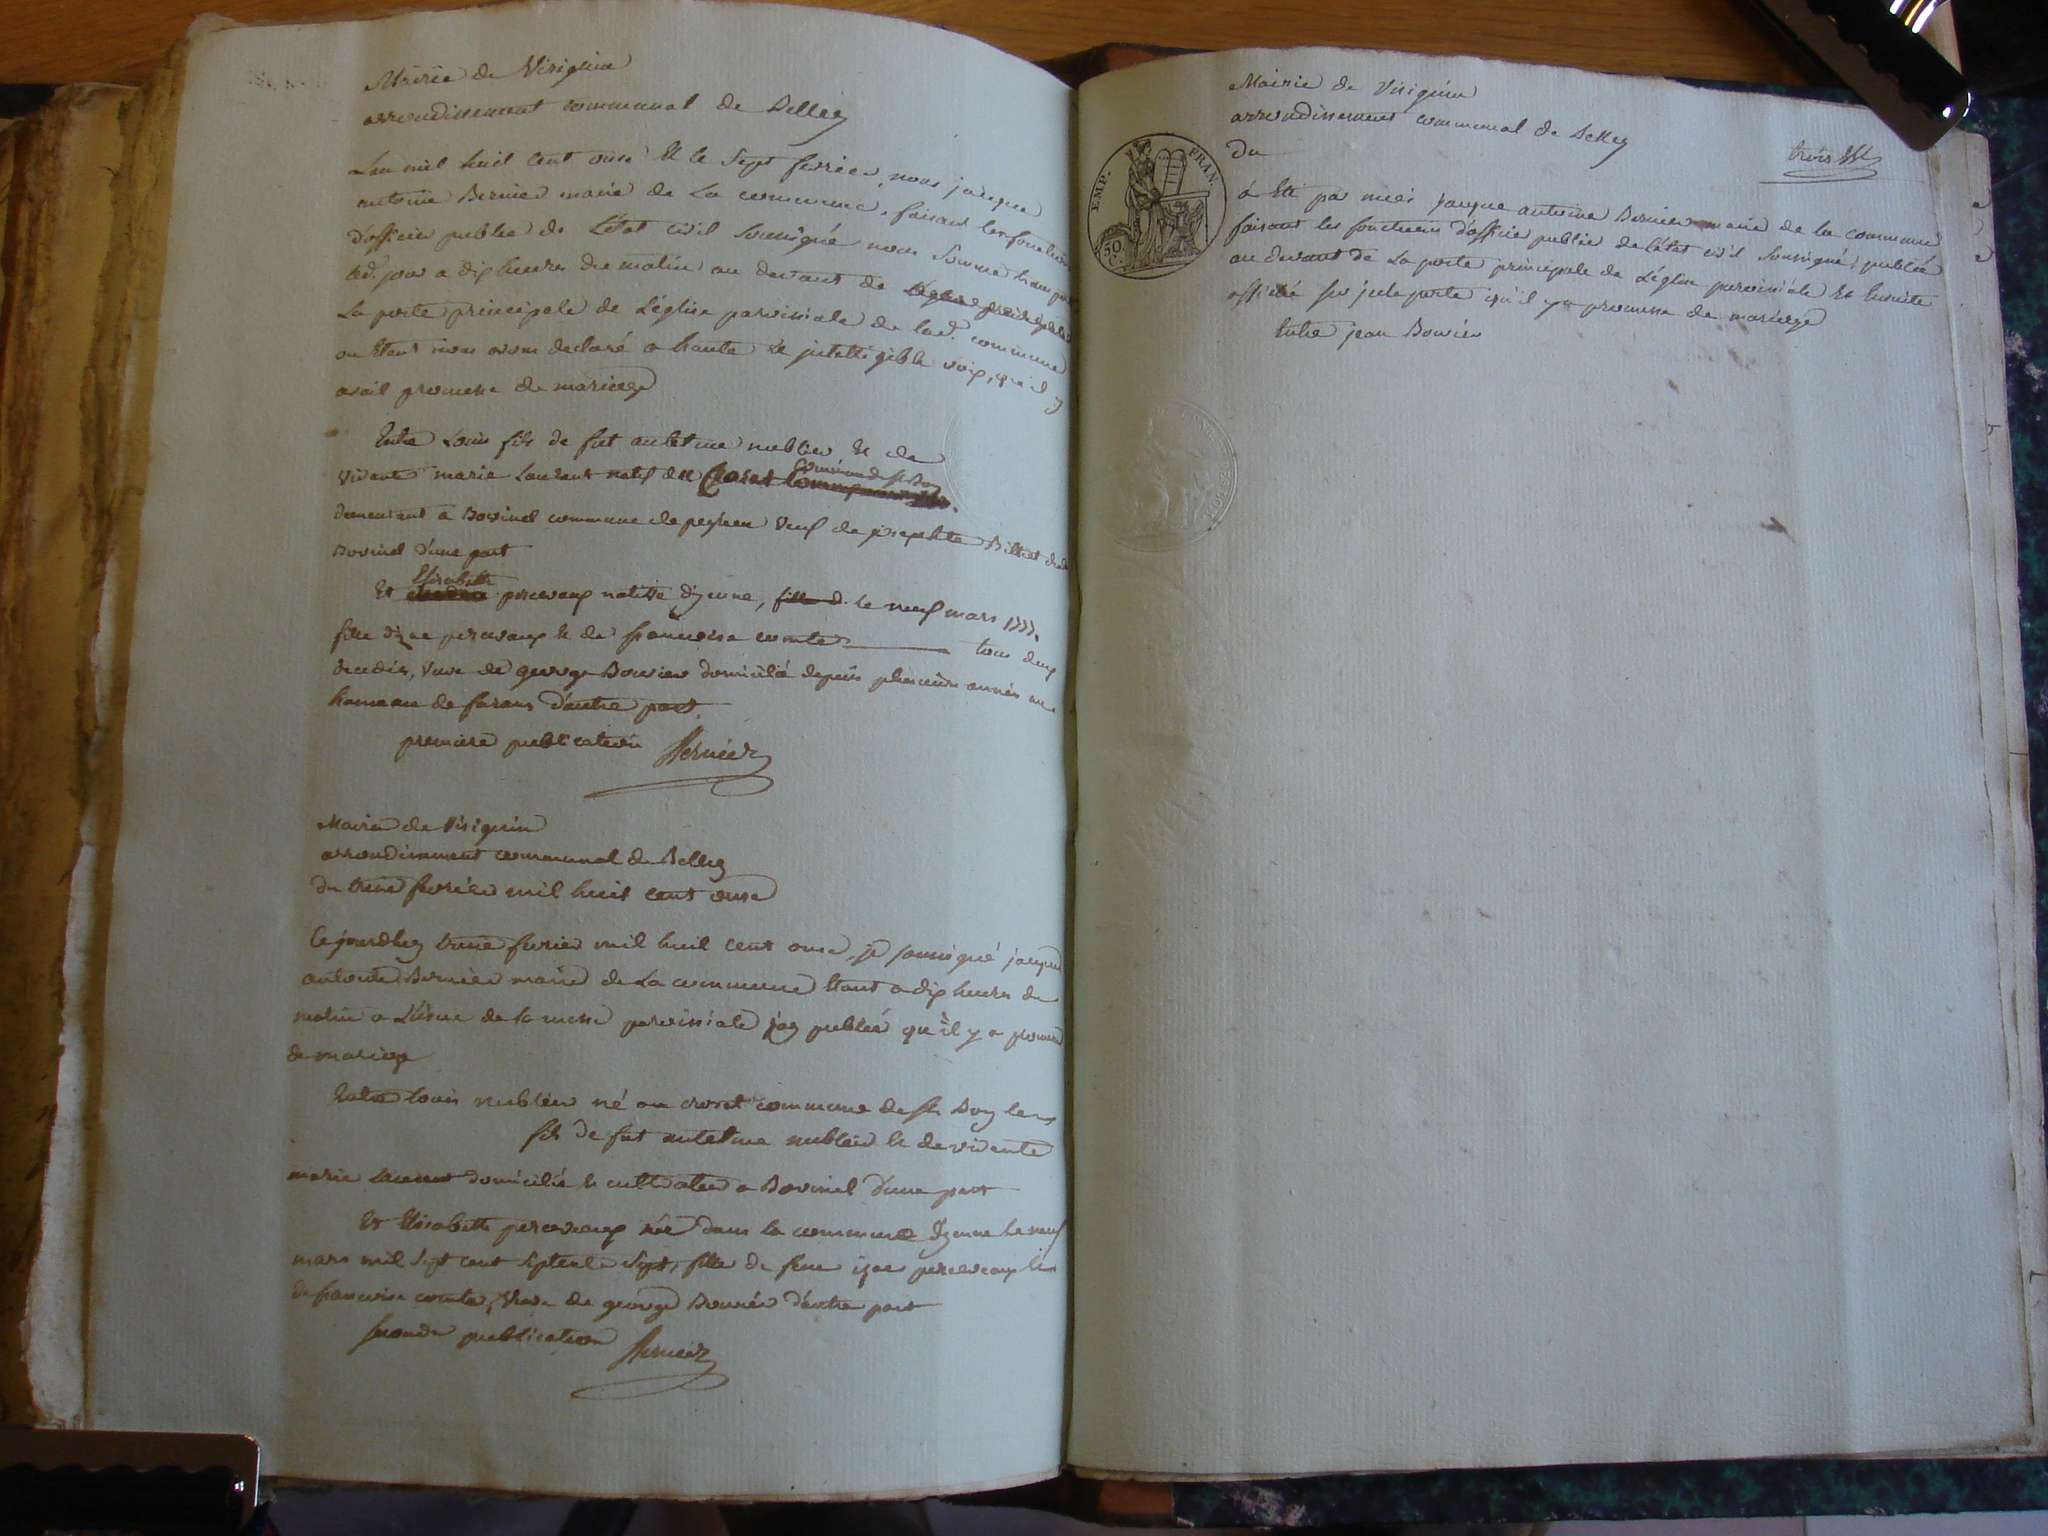 Mairie de Virignin
arrondissement communal de Belley
L'an mil huit cent onze Et le Sept fevrier, nous jacque
antoine Bernier maire de La commune, faisant les fonctions
d'officier public de L'état civil Soussigné nous Somme transporté
led. jour a dix heures du matin au devant de
La porte principale de L'église paroissiale de lad. commune
ou Etant nous avons declaré a haute Et jntelligible voix, qu'il y
avait promesse de mariage
Entre Louis fils de fut antelme nublier Et de
vivante marie Laurent natif de commune de St Boy
demeurant a Bovinel commune de peyrieu veuf de josephte Billiet dud.
Bovinel d'une part
Elisabette
Et percevaux nattive dyenne, fille d. le neuf mars 1777.
fille d'izac percevaux Et de francoise comte tous deux
decedés, veuve de george Bouvier domicilié depuis plusieurs années au
hameau de farans d'autre part
premiere publication Bernier
Mairie de Virignin
arrondissement communal de Belley
du treize fevrier mil huit cent onze
Ce jourdhuy treize fevrier mil huit cent onze, je soussigné jacque
antoine Bernier maire de La commune Etant a dix heures du
matin a L'issue de la messe paroissiale j'ay publié qu'il y a promesse
de mariage
Entre Louis nublier né au croset commune de St Boy le
fils de fut antelme nublier Et de vivante
marie Laurent domicilié Et cultivateur a Bovinel d'une part
Et Elisabette percevaux née dans la commune dyenne Le neuf
mars mil Sept cent Septente Sept, fille de feux izac percevaux Et
de francoise comte, veuve de george Bouvier d'autre part
seconde publication Bernier
Mairie de Virignin
arrondissement communal de Belley
du
trois
EMP. FRAN.
50 C.
á Eté par moi jacque antoine Bernier maire de la commune
faisant les fonctions d'officier public de L'état civil Soussigné, publié
au devant de La porte principale de L'église paroissiale Et Ensuite
affiché sur jcele porte qu'il y a promesse de mariage
Entre jean Bouvier